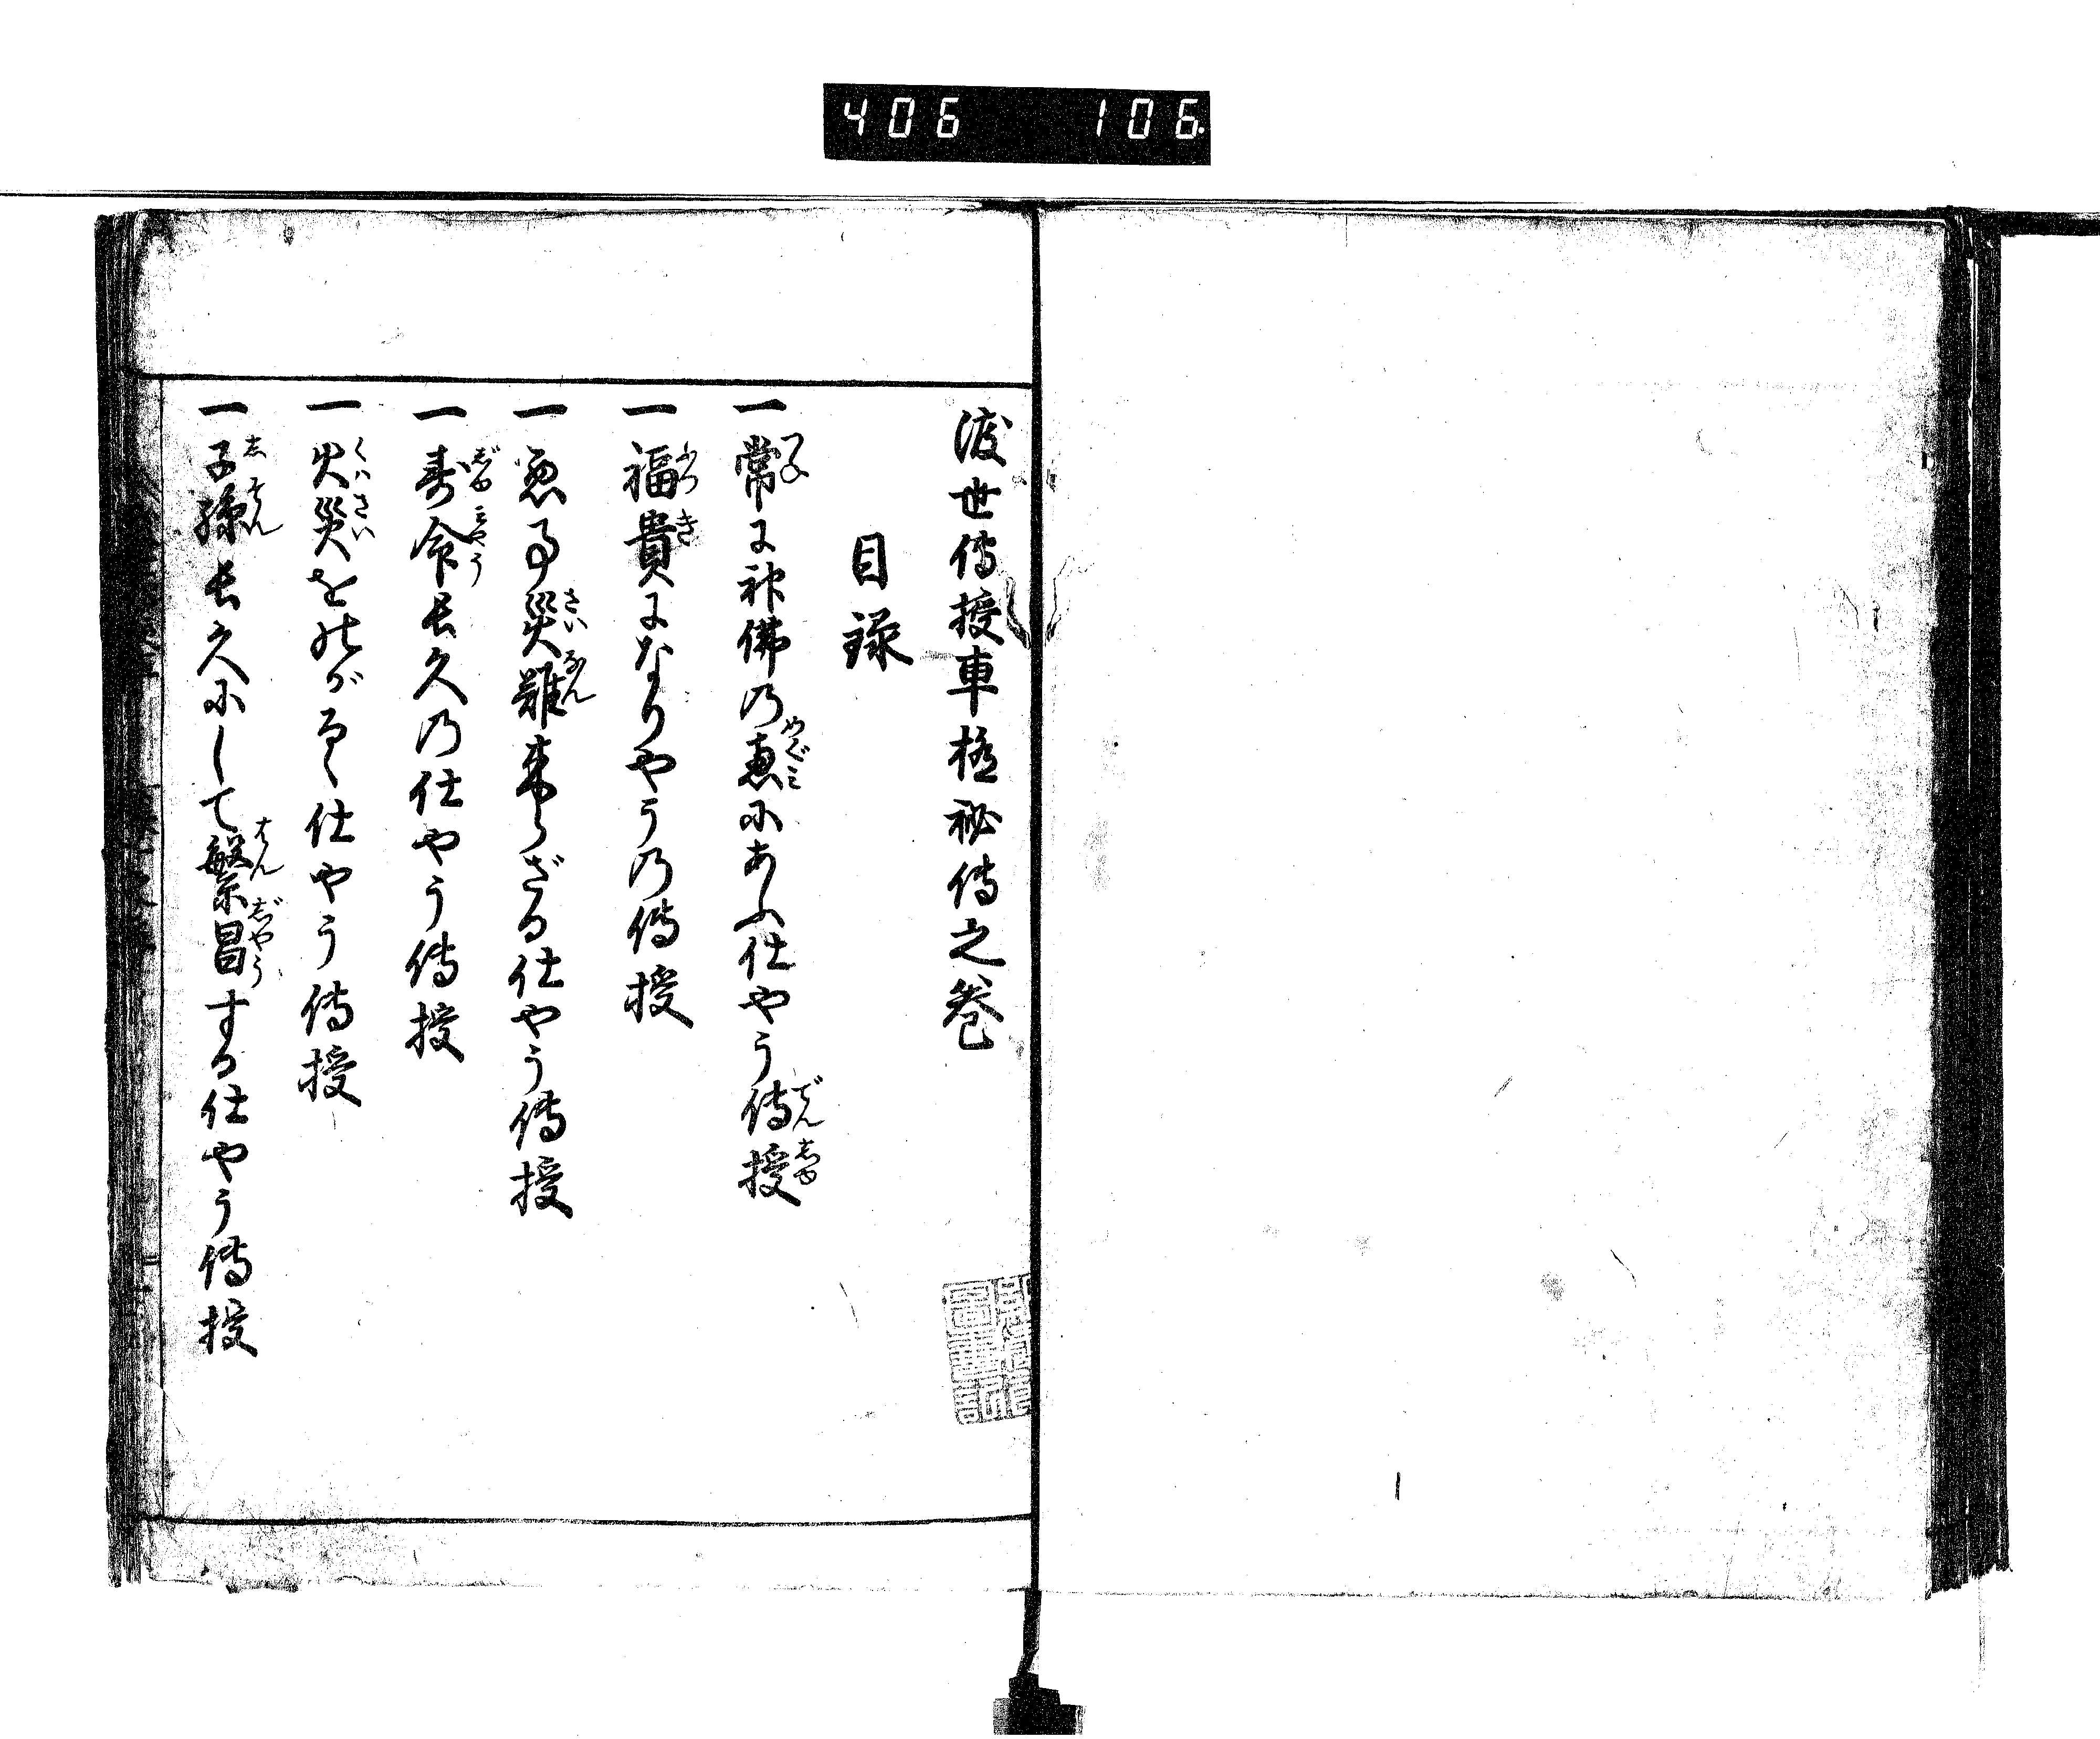 406 106
渡世傳授車極秘傳之巻
目録
一常に神佛の恵にあふ仕やう傳授
一福貴になりやうの傳授
一悪事災難来らざる仕やう傳授
一寿命長久の仕やう傳授
一火災をのがるゝ仕やう傳授
一子孫長久にして繁昌する仕やう傳授